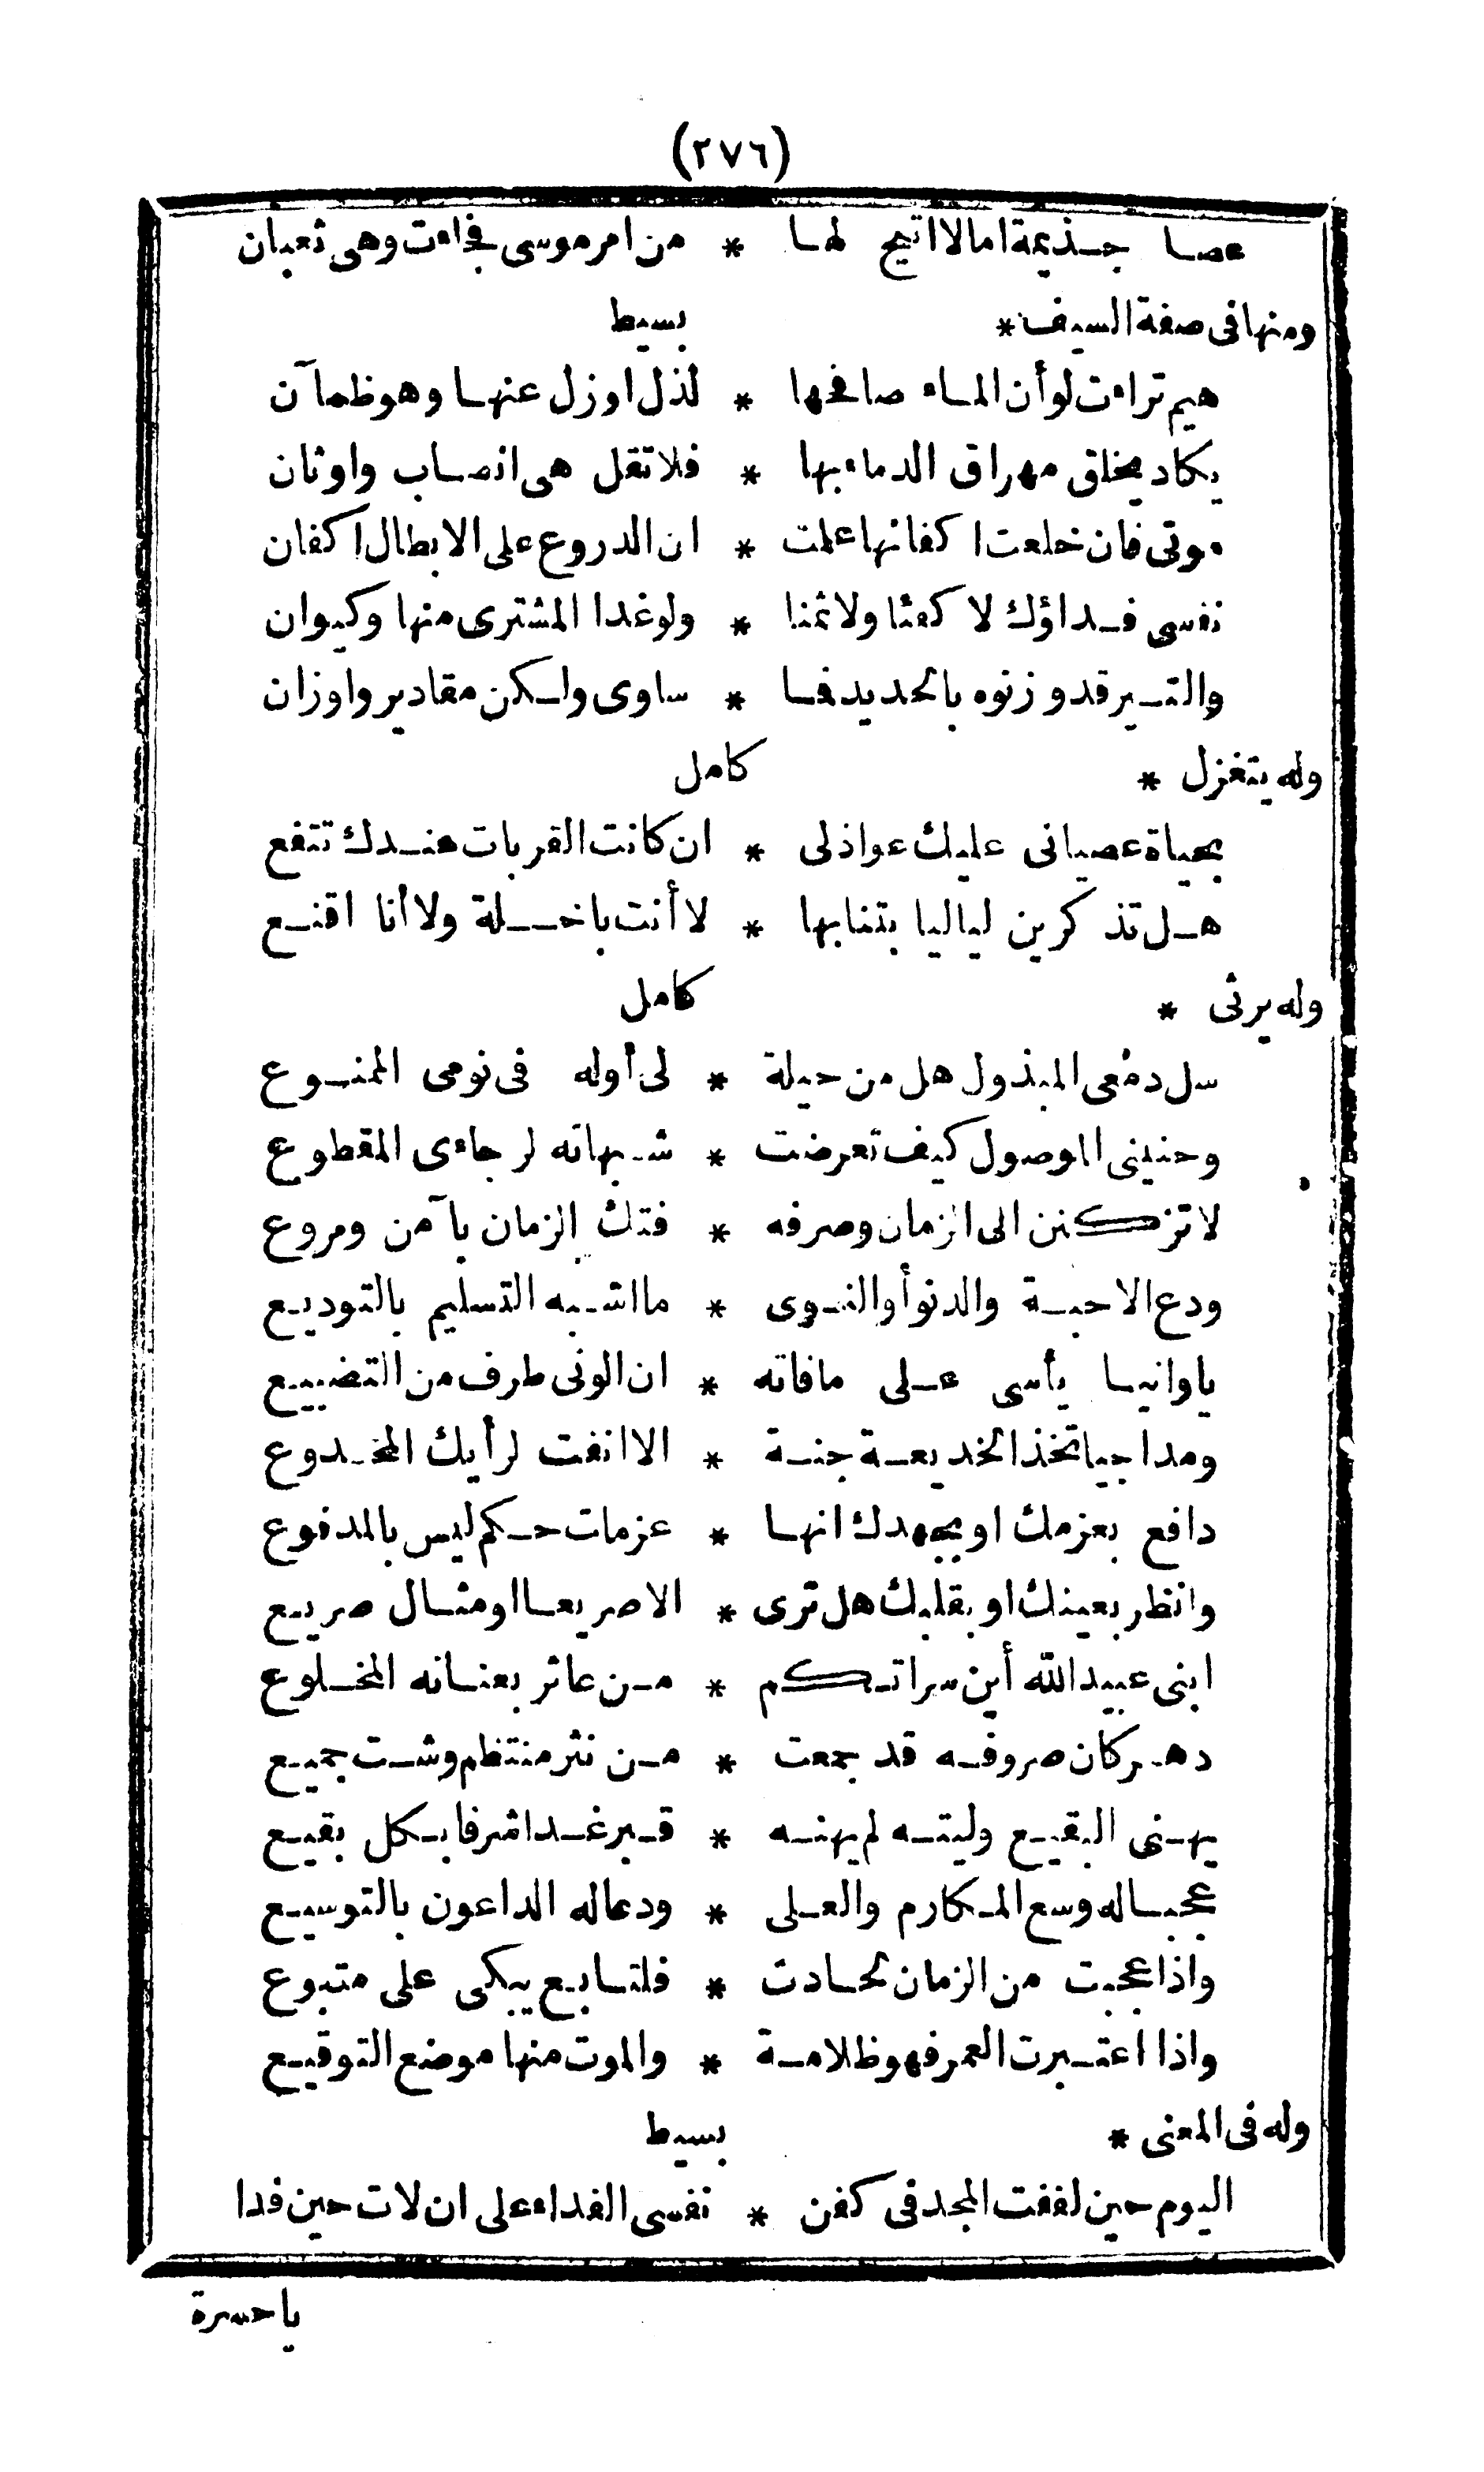 (٢٧٦)
عصا جذيمة امالا اتيح لها * من امر موسى فجاءت وهى ثعبان
ومنها فى صفة السيف * بسيط
هيم تراءت لو أن الماء صافحها * لذل او زل عنها وهو ظمآن
يكاد يخلق مهراق الدماء بها * فلا تقل هى انصاب واوثان
موتى فان خلعت اكفانها علمت * ان الدروع على الابطال اكفان
نفسى فداؤك لا كفئا ولا ثمنا * ولو غدا المشترى منها وكيوان
والتبر قد وزنوه بالحديد فما * ساوى ولكن مقادير واوزان
وله يتغزل * كامل
بحياة عصيانى عليك عواذلى * ان كانت القربات عندك تنفع
هل تذكرين لياليا بتنا بها * لا أنت باخلة ولا أنا اقنع
وله يرثى * كامل
سل دمعى المبذول هل من حيلة * لى أوله فى نومى الممنوع
وحنينى الموصول كيف تعرضت * شبهاته لرجاءى المقطوع
لا تركنن الى الزمان وصرفه * فتك الزمان بآمن ومروع
ودع الاحبة والدنو أو النوى * ما اشبه التسليم بالتوديع
يا وانيا يأسى على ما فاته * ان الونى طرف من التضييع
ومداجيا تخذ الخديعة جنة * الا انفت لرأيك المخدوع
دافع بعزمك او بجهدك انها * عزمات حكم ليس بالمدفوع
وانظر بعينك او بقلبك هل ترى * الا صريعا او مثال صريع
ابنى عبيد الله أين سراتكم * من عاثر بعنانه المخلوع
دهر كان صروفه قد جمعت * من نثر منتظم وشت جميع
يهنى البقيع وليته لم يهنه * قبر غدا شرفا بكل بقيع
عجبا له وسع المكارم والعلى * ودعا له الداعون بالتوسيع
واذا عجبت من الزمان لحادث * فلتابع يبكى على متبوع
واذا اعتبرت العمر فهو ظلامة * والموت منها موضع التوقيع
وله فى المعنى * بسيط
اليوم حين لففت المجد فى كفن * نفسى الفداء على ان لات حين فدا
يا حسرة